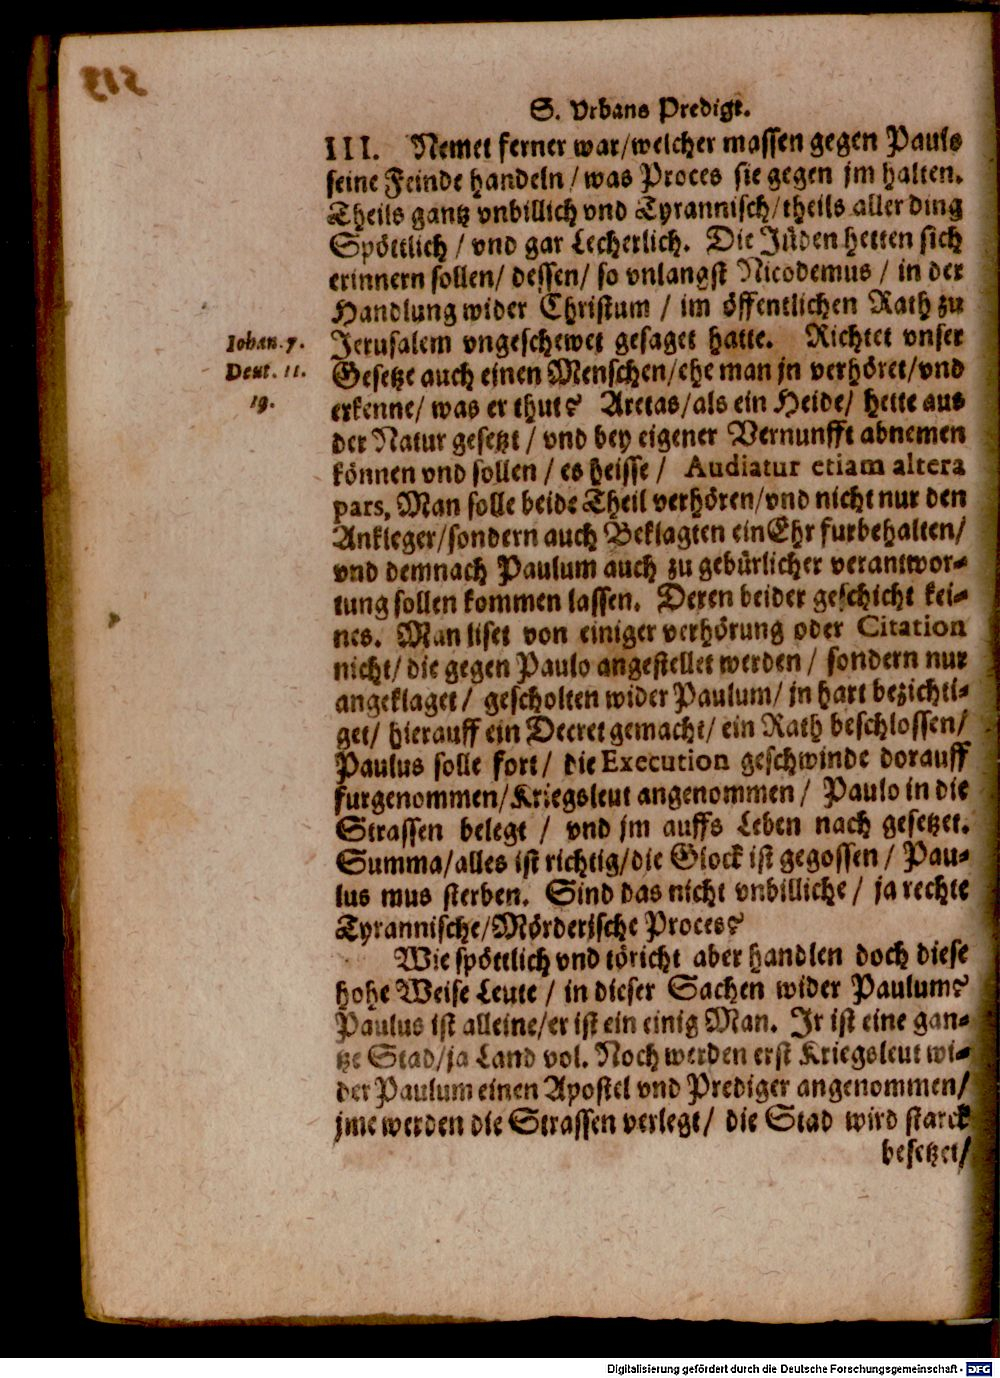 S. Vrbans Predigt.
III. Nemet ferner war/welcher massen gegen Pauls
seine Feinde handeln / was Proces sie gegen jm halten.
Theils gantz vnbillich vnd Tyrannisch/theils aller ding
Spöttlich / vnd gar Lecherlich. Die Jüden hetten sich
erinnern sollen/ dessen/ so vnlangst Nicodemus / in der
Handlung wider Christum / im öffentlichen Rath zu
Iohan. 7. Jerusalem vngeschewet gesaget hatte. Richtet vnser
Deut. 11. Gesetze auch einen Menschen/ehe man jn verhöret/vnd
19. erkenne/ was er thut? Aretas/als ein Heide/ hette aus
der Natur gesetzt / vnd bey eigener Vernunfft abnemen
können vnd sollen / es heisse / Audiatur etiam altera
pars, Man solle beide Theil verhören/vnd nicht nur den
Ankleger/sondern auch Beklagten ein Ehr furbehalten/
vnd demnach Paulum auch zu gebürlicher verantwor-
tung sollen kommen lassen. Deren beider geschicht kei-
nes. Man liset von einiger verhörung oder Citation
nicht/ die gegen Paulo angestellet werden / sondern nur
angeklaget / gescholten wider Paulum/ jn hart bezichti-
get/ hierauff ein Decret gemacht/ ein Rath beschlossen/
Paulus solle fort/ die Execution geschwinde dorauff
furgenommen/Kriegsleut angenommen / Paulo in die
Strassen belegt / vnd jm auffs Leben nach gesetzet.
Summa/alles ist richtig/die Glock ist gegossen / Pau-
lus mus sterben. Sind das nicht vnbilliche / ja rechte
Tyrannische/Mörderische Proces?
Wie spöttlich vnd töricht aber handlen doch diese
hohe Weise Leute / in dieser Sachen wider Paulum?
Paulus ist alleine/er ist ein einig Man. Jr ist eine gan-
tze Stad/ja Land vol. Noch werden erst Kriegsleut wi-
der Paulum einen Apostel vnd Prediger angenommen/
jme werden die Strassen verlegt/ die Stad wird starck
besetzet/
Digitalisierung gefördert durch die Deutsche Forschungsgemeinschaft - DFG